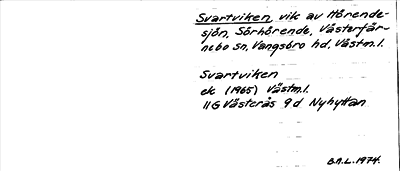 Svartviken, vik av Hörende-
sjön, Sörhörende, Västerfär-
nebo sn, Vangsbro hd, Västm.l.
Svartviken
ek (1965) Västm.l.
11G Västerås 9d Nyhyttan
B.A.L. 1974.